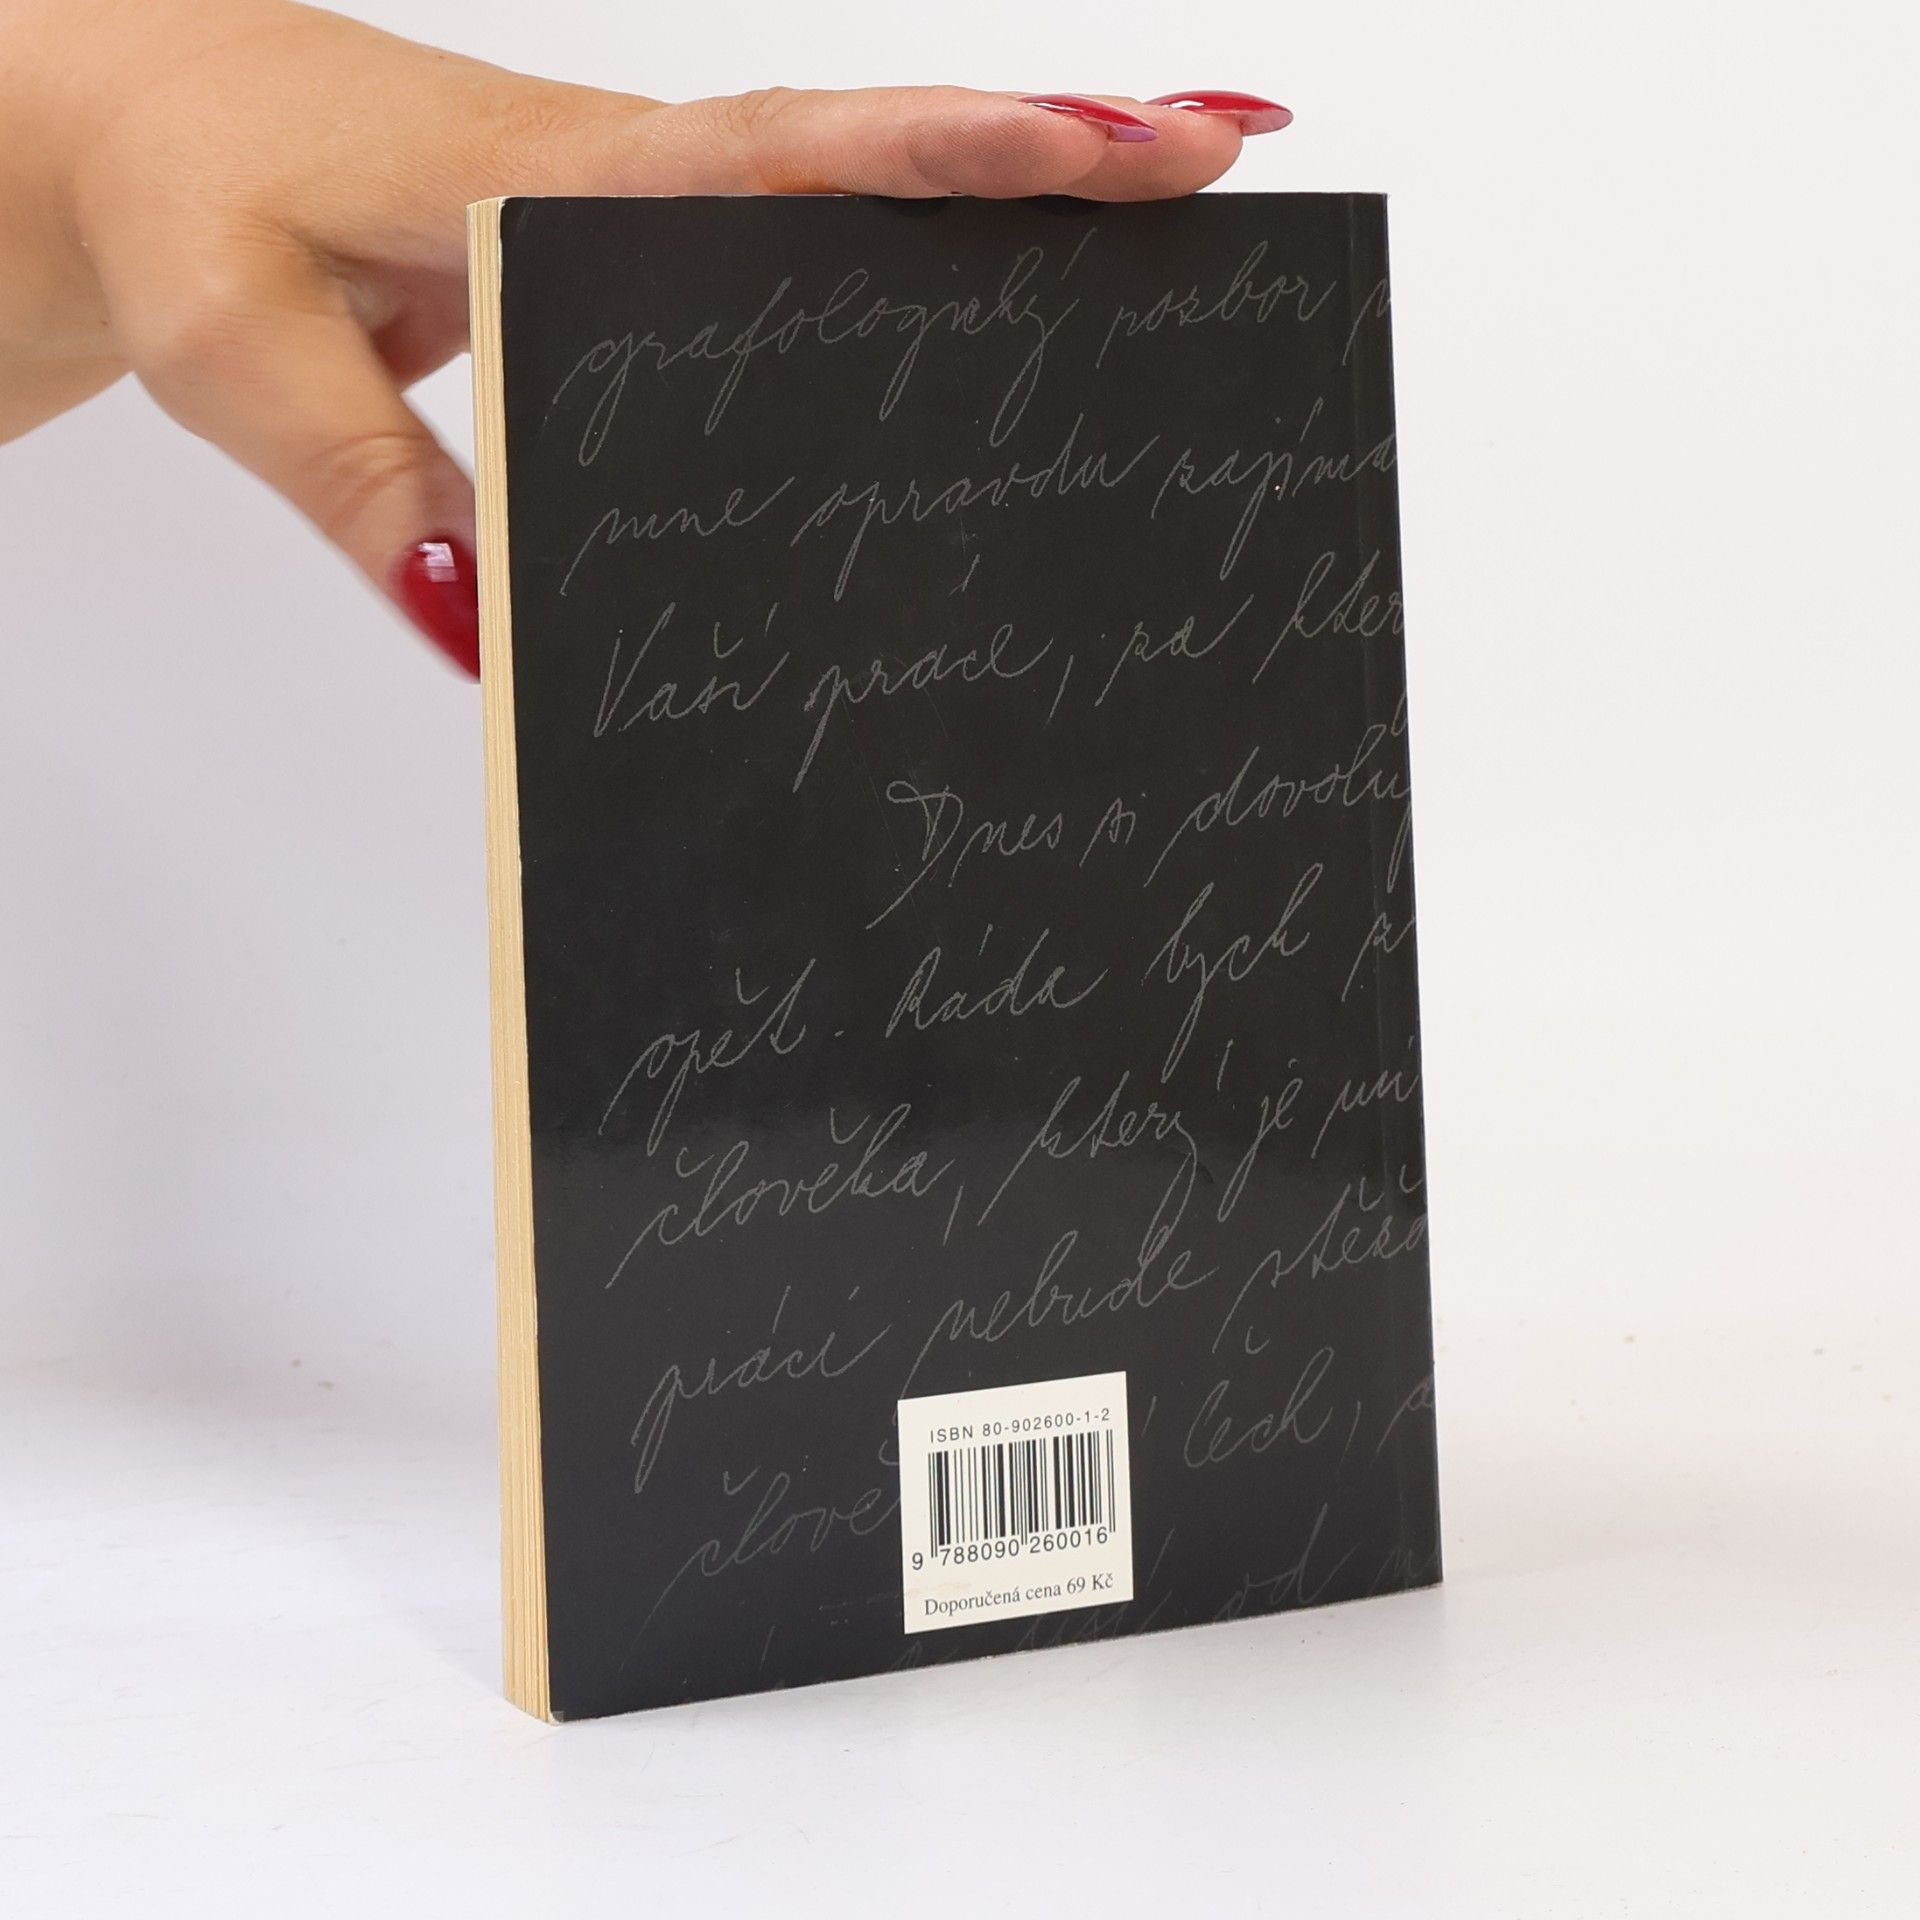 grafologický rozbor
mne opravdu zajíma
Vaší práce, za kter
Dnes si dovoluj
opět. Ráda bych
člověka, který je
prácí nebude stěžo
Čech,
od
ISBN 80-902600-1-2
9 788090 260016
Doporučená cena 69 Kč